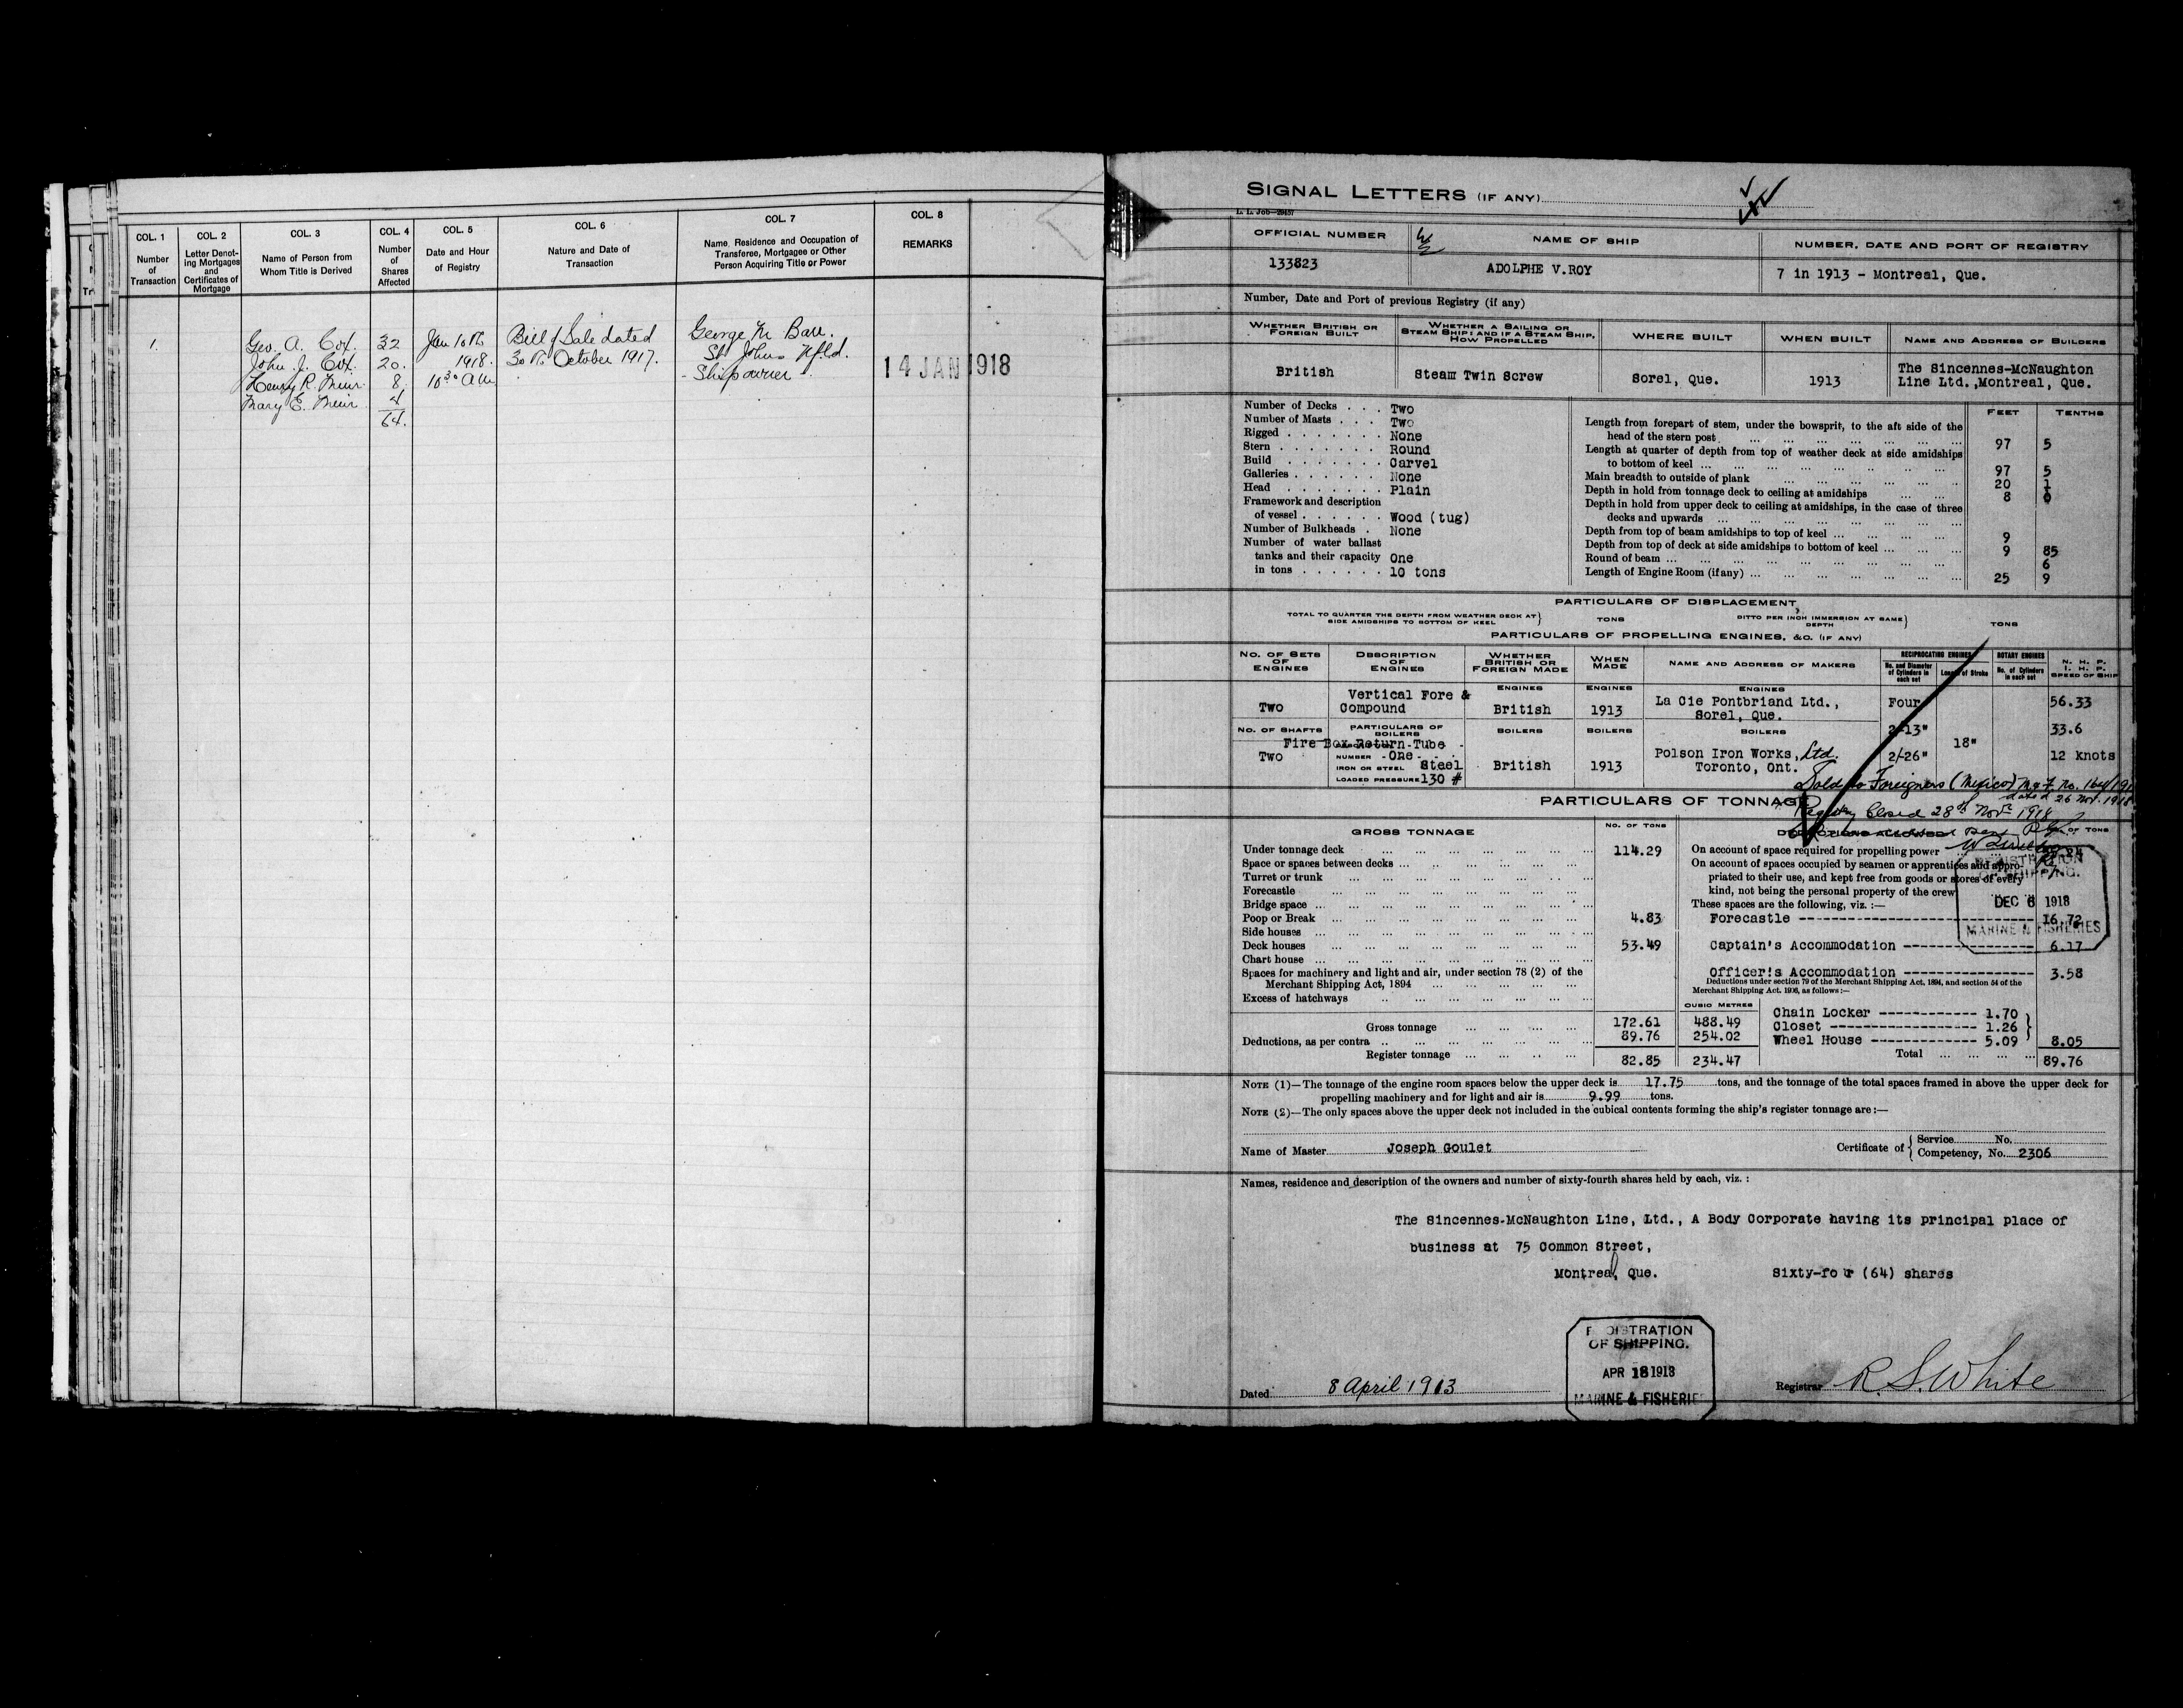 COL. 1
Number
of
Transaction
COL. 2
Letter Denot-
ing Mortgages
and
Certificates of
Mortgage
COL. 3
Name of Person from
Whom Title is Derived
COL. 4
Number
of
Shares
Affected
COL. 5
Date and Hour
of Registry
COL. 6
Nature and Date of
Transaction
COL. 7
Name, Residence and Occupation of
Transferee, Mortgagee or Other
Person Acquiring Title or Power
COL. 8
REMARKS
1. Geo. A. Cox. 32 Jan 10th Bill of Sale dated George M Barr.
John J. Cox. 20. 1918. 30th October 1917. St Johns Nfld.
Henry R. Muir 8 10 30 am Shipowner
Mary E. Muir 4
64.
14 JAN 1918
SIGNAL LETTERS (IF ANY)
L. I. Job—29457
OFFICIAL NUMBER NAME OF SHIP NUMBER, DATE AND PORT OF REGISTRY
133823 ADOLPHE V.ROY 7 in 1913 - Montreal, Que.
Number, Date and Port of previous Registry (if any)
WHETHER BRITISH OR
FOREIGN BUILT
WHETHER A SAILING OR
STEAM SHIP: AND IF A STEAM SHIP,
HOW PROPELLED
WHERE BUILT
WHEN BUILT
NAME AND ADDRESS OF BUILDERS
British Steam Twin Screw Sorel, Que. 1913 The Sincennes-McNaughton
Line Ltd.,Montreal, Que.
Number of Decks . . . Two
Number of Masts . . . Two
Rigged . . . . . . . None
Stern . . . . . . . Round
Build . . . . . . . Carvel
Galleries . . . . . . None
Head . . . . . . . Plain
Framework and description
of vessel . . . . . . Wood (tug)
Number of Bulkheads . None
Number of water ballast
tanks and their capacity One
in tons . . . . . . 10 tons
FEET TENTHS
Length from forepart of stem, under the bowsprit, to the aft side of the
head of the stern post 97 5
Length at quarter of depth from top of weather deck at side amidships
to bottom of keel ... 97 5
Main breadth to outside of plank 20 1
Depth in hold from tonnage deck to ceiling at amidships 8 0
Depth in hold from upper deck to ceiling at amidships, in the case of three
decks and upwards
Depth from top of beam amidships to top of keel ... 9
Depth from top of deck at side amidships to bottom of keel ... 9 85
Round of beam ... 6
Length of Engine Room (if any) ... 25 9
PARTICULARS OF DISPLACEMENT,
TOTAL TO QUARTER THE DEPTH FROM WEATHER DECK AT
SIDE AMIDSHIPS TO BOTTOM OF KEEL } TONS
DITTO PER INCH IMMERSION AT SAME
DEPTH } TONS
PARTICULARS OF PROPELLING ENGINES, &C. (IF ANY)
NO. OF SETS
OF
ENGINES
DESCRIPTION
OF
ENGINES
WHETHER
BRITISH OR
FOREIGN MADE
WHEN
MADE
NAME AND ADDRESS OF MAKERS
RECIPROCATING ENGINES
No. and Diameter
of Cylinders in
each set
Length of Stroke
ROTARY ENGINES
No. of Cylinders
in each set
N. H. P.
I. H. P.
SPEED OF SHIP
ENGINES ENGINES ENGINES
Two Vertical Fore &
Compound British 1913 La Cie Pontbriand Ltd.,
Sorel, Que. Four 56.33
NO. OF SHAFTS PARTICULARS OF
BOILERS BOILERS BOILERS BOILERS 2/13" 33.6
Fire Box Return Tube
18"
Two NUMBER One British 1913 Polson Iron Works, Ltd.
Toronto, Ont. 2/26" 12 Knots
IRON OR STEEL Steel
LOADED PRESSURE 130 #
Sold to Foreigners (Mexico) M & F. No. 164/191
dated 26 Nov. 1918
Registry Closed 28th Novr 1918
PARTICULARS OF TONNAGE
GROSS TONNAGE NO. OF TONS
DEDUCTIONS ALLOWED NO. OF TONS
Under tonnage deck 114.29
Space or spaces between decks ...
Turret or trunk
Forecastle
Bridge space ...
Poop or Break 4.83
Side houses
Deck houses 53.49
Chart house ...
Spaces for machinery and light and air, under section 78 (2) of the
Merchant Shipping Act, 1894
Excess of hatchways
CUBIC METRES
Gross tonnage 172.61 488.49
Deductions, as per contra 89.76 254.02
Register tonnage 82.85 234.47
On account of space required for propelling power
On account of spaces occupied by seamen or apprentices and appro-
priated to their use, and kept free from goods or stores of every
kind, not being the personal property of the crew
These spaces are the following, viz. :—
Forecastle 16.72
Captain's Accommodation 6.17
Officer's Accommodation 3.58
Deductions under section 79 of the Merchant Shipping Act, 1894, and section 54 of the
Merchant Shipping Act, 1906, as follows:—
Chain Locker 1.70
Closet 1.26
Wheel House 5.09 } 8.05
Total 89.76
REGISTRATION
OF SHIPPING.
DEC 6 1918
MARINE & FISHERIES
NOTE (1)—The tonnage of the engine room spaces below the upper deck is 17.75 tons, and the tonnage of the total spaces framed in above the upper deck for
propelling machinery and for light and air is 9.99 tons.
NOTE (2)—The only spaces above the upper deck not included in the cubical contents forming the ship's register tonnage are :—
Name of Master Joseph Goulet
Certificate of { Service No.
Competency, No. 2306
Names, residence and description of the owners and number of sixty-fourth shares held by each, viz. :
The Sincennes-McNaughton Line, Ltd., A Body Corporate having its principal place of
business at 75 Common Street,
Montreal, Que. Sixty-four (64) shares
REGISTRATION
OF SHIPPING.
APR 18 1913
MARINE & FISHERIE
Dated 8 April 1913
Registrar R. S. White